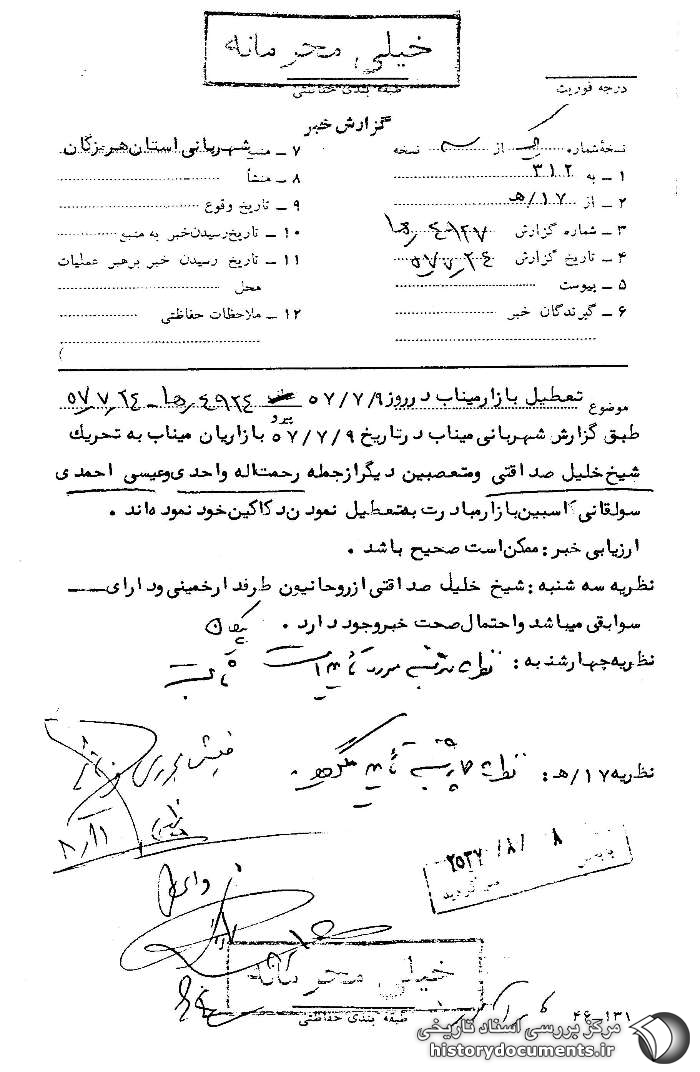 خیلی محرمانه
طبقه بندی حفاظتی
درجه فوریت
گزارش خبر
نسخهٔ شماره از نسخه
۱ ـ به ۳۱۲
۲ ـ از ۱۷/هـ
۳ ـ شماره گزارش
۴ ـ تاریخ گزارش ۵۷/۷/۲۴
۵ ـ پیوست
۶ ـ گیرندگان خبر
۷ ـ منبع شهربانی استان هرمزگان
۸ ـ منشأ
۹ ـ تاریخ وقوع
۱۰ ـ تاریخ رسیدن خبر به منبع
۱۱ ـ تاریخ رسیدن خبر برهبر عملیات
محل
۱۲ ـ ملاحظات حفاظتی
موضوع تعطیل بازار میناب در روز ۵۷/۷/۹ پیرو ۵۷/۷/۲۴
طبق گزارش شهربانی میناب در تاریخ ۵۷/۷/۹ بازاریان میناب به تحریک
شیخ خلیل صداقتی ومتعصبین دیگر از جمله رحمت اله واحدی وعیسی احمدی
سولقانی کاسبین بازار مبادرت به تعطیل نمودن دکاکین خود نموده اند .
ارزیابی خبر : ممکن است صحیح باشد .
نظریه سه شنبه : شیخ خلیل صداقتی از روحانیون طرفدار خمینی و دارای
سوابقی میباشد واحتمال صحت خبر وجود دارد .
نظریه چهارشنبه : نظریه سه شنبه مورد تائید است
نظریه ۱۷/هـ : نظریه چهارشنبه تائید میگردد .
۲۵۳۷/۸/۸
بایگانی
می گردید
خیلی محرمانه
طبقه بندی حفاظتی
۴۶-۱۳۱
مرکز بررسی اسناد تاریخی
historydocuments.ir